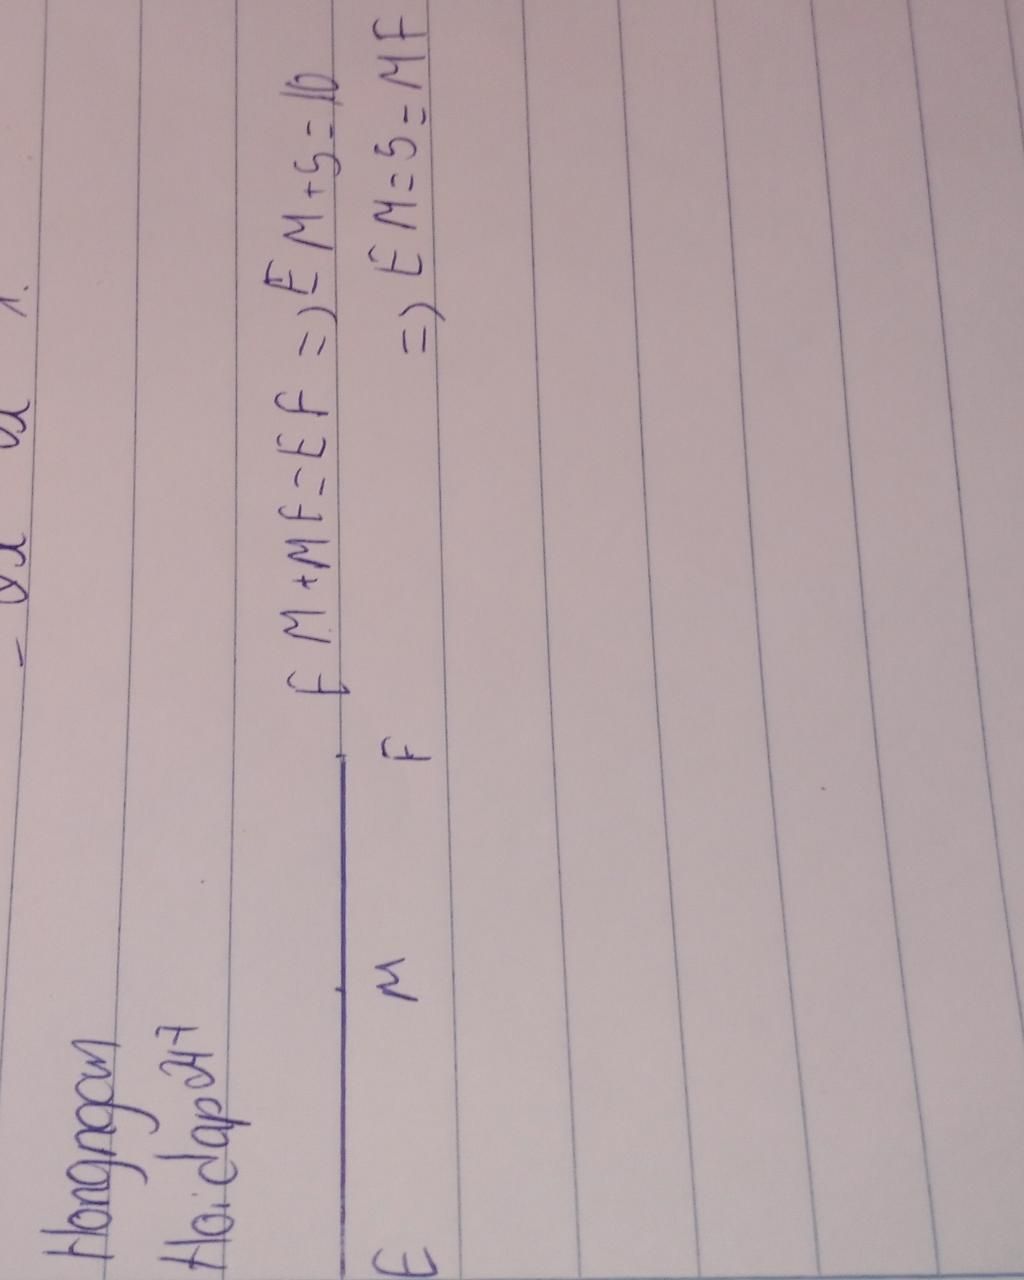 Hongngan
Hoidap247
EM+MF=EF =) EM+5=10
E M F
=) EM=5=MF